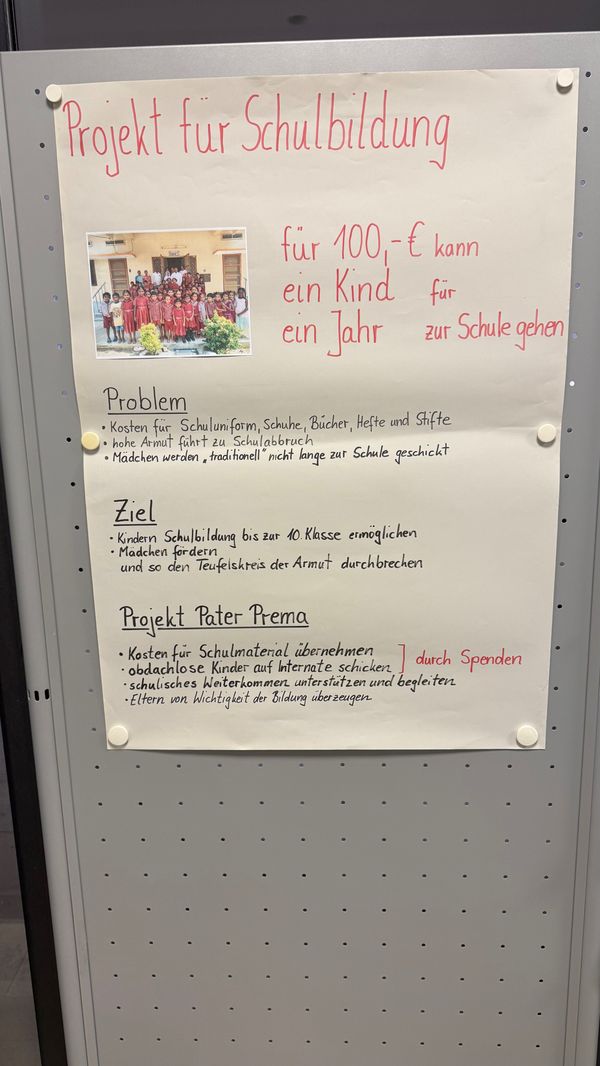 Projekt für Schulbildung
für 100,-€ kann
ein Kind für
ein Jahr zur Schule gehen
Problem
• Kosten für Schuluniform, Schuhe, Bücher, Hefte und Stifte
• hohe Armut führt zu Schulabbruch
• Mädchen werden „traditionell" nicht lange zur Schule geschickt
Ziel
• Kindern Schulbildung bis zur 10. Klasse ermöglichen
• Mädchen fördern
und so den Teufelskreis der Armut durchbrechen
Projekt Pater Prema
• Kosten für Schulmaterial übernehmen
• obdachlose Kinder auf Internate schicken ] durch Spenden
• schulisches Weiterkommen unterstützen und begleiten
• Eltern von Wichtigkeit der Bildung überzeugen